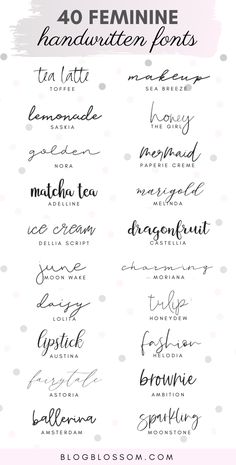 40 FEMININE
handwritten fonts
tea latte
TOFFEE
makeup
SEA BREEZE
lemonade
SASKIA
honey
THE GIRL
golden
NORA
mermaid
PAPERIE CREME
matcha tea
ADELLINE
marigold
MELINDA
ice cream
DELLIA SCRIPT
dragonfruit
CASTELLIA
june
MOON WAKE
charming
MORIANA
daisy
LOLITA
tulip
HONEYDEW
lipstick
AUSTINA
fashion
HELODIA
fairytale
ASTORIA
brownie
AMBITION
ballerina
AMSTERDAM
sparkling
MOONSTONE
BLOGBLOSSOM.COM